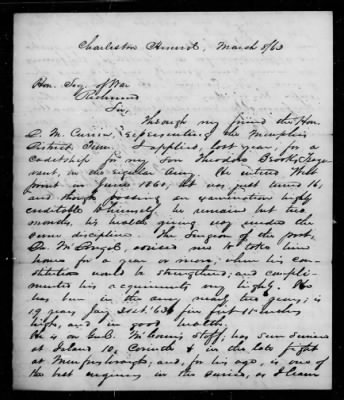 Charleston Arsenal, March 8/63
Hon. Secy. of War
Richmond
Sir,
Through my friend the Hon.
D. M. Currin, representing the Memphis
District, Tenn. I applied, last year, for a
Cadetship for my son Theodore Brooks
in the regular Army. He entered West
point in June 1860, but was just turned 16,
and though passing an examination highly
creditable to himself, he remained but two
months, his health giving way under the
severe discipline. The Surgeon of the post,
Dr. McDougal, advised me to take him
home for a year or more, when his con-
stitution would be strengthened; and compli-
mented his acquirements very highly. He
has been in the army nearly two years; is
19 years Jany 31st/63, five feet 11 inches
high, and in good health.
He is on Genl. McCown's Staff, has seen service
at Island 10, Corinth & in the late fight
at Murfreesborough; and, for his age, is one of
the best engineers in the service, as I learn